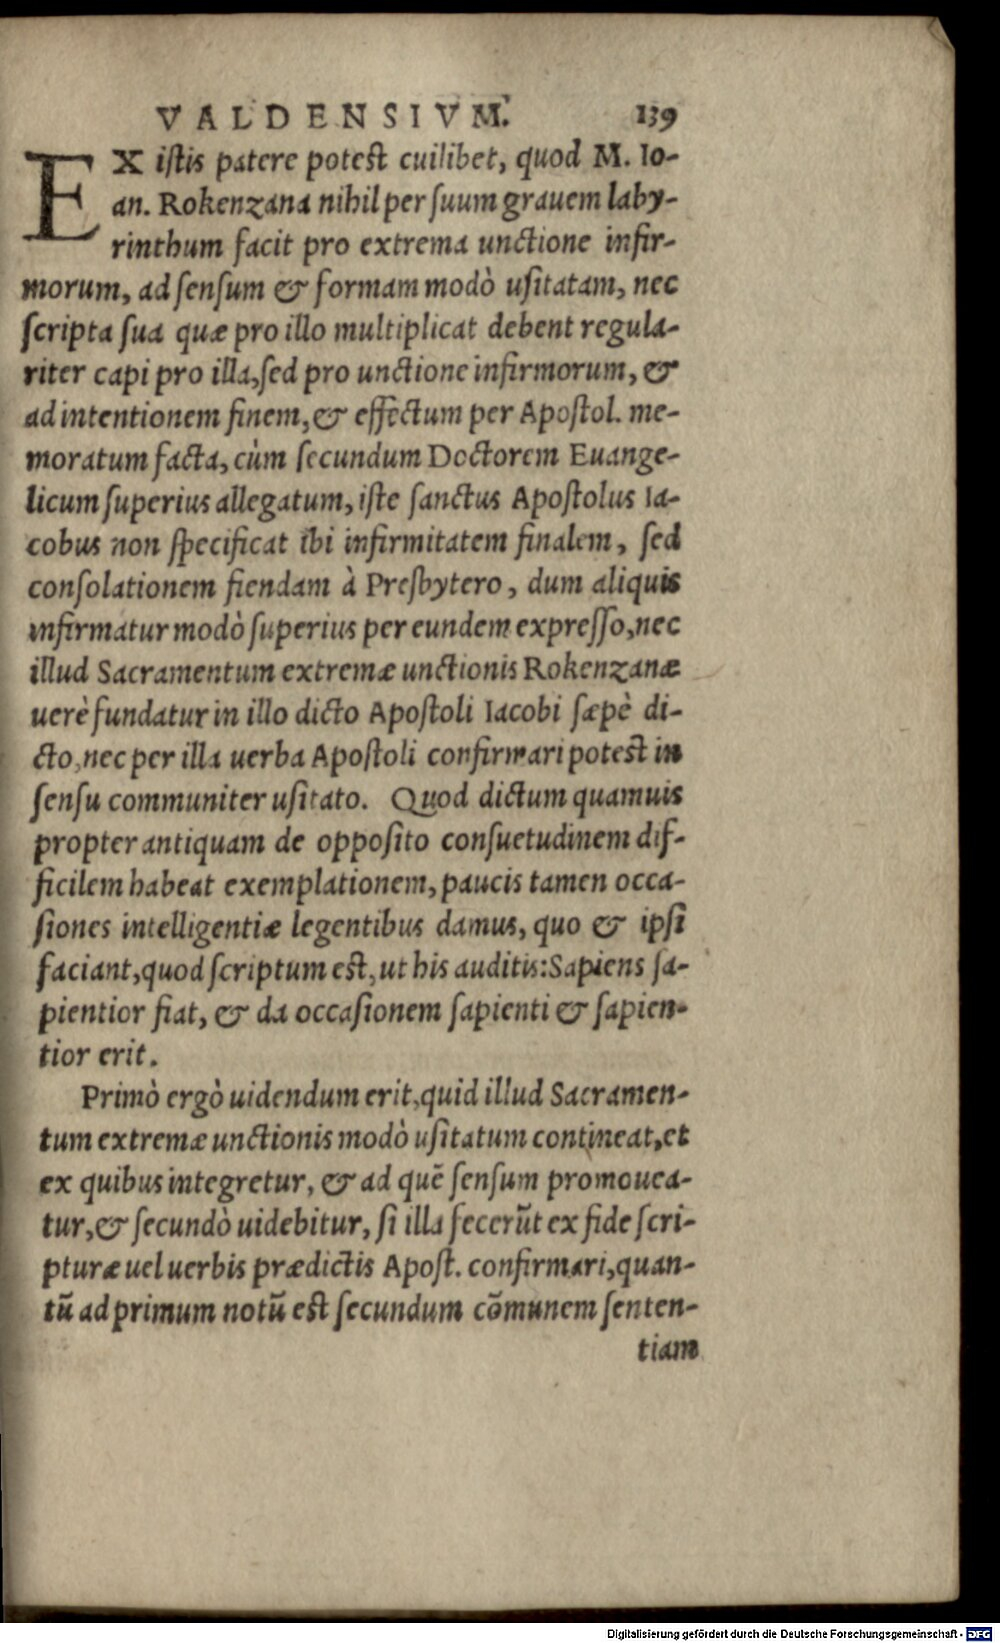 VALDENSIVM. 139
EX istis patere potest cuilibet, quod M. Io-
an. Rokenzana nihil per suum grauem laby-
rinthum facit pro extrema unctione infir-
morum, ad sensum & formam modò usitatam, nec
scripta sua quæ pro illo multiplicat debent regula-
riter capi pro illa, sed pro unctione infirmorum, &
ad intentionem finem, & effectum per Apostol. me-
moratum facta, cùm secundum Doctorem Euange-
licum superius allegatum, iste sanctus Apostolus Ia-
cobus non specificat ibi infirmitatem finalem, sed
consolationem fiendam à Presbytero, dum aliquis
infirmatur modò superius per eundem expresso, nec
illud Sacramentum extremæ unctionis Rokenzanæ
uerè fundatur in illo dicto Apostoli Iacobi sæpè di-
cto, nec per illa uerba Apostoli confirmari potest in
sensu communiter usitato. Quod dictum quamuis
propter antiquam de opposito consuetudinem dif-
ficilem habeat exemplationem, paucis tamen occa-
siones intelligentiæ legentibus damus, quo & ipsi
faciant, quod scriptum est, ut his auditis: Sapiens sa-
pientior fiat, & da occasionem sapienti & sapien-
tior erit.
Primò ergò uidendum erit, quid illud Sacramen-
tum extremæ unctionis modò usitatum contineat, et
ex quibus integretur, & ad quē sensum promouea-
tur, & secundò uidebitur, si illa fecerūt ex fide scri-
pturæ uel uerbis prædictis Apost. confirmari, quan-
tū ad primum notū est secundum cōmunem senten-
tiam
Digitalisierung gefördert durch die Deutsche Forschungsgemeinschaft - DFG